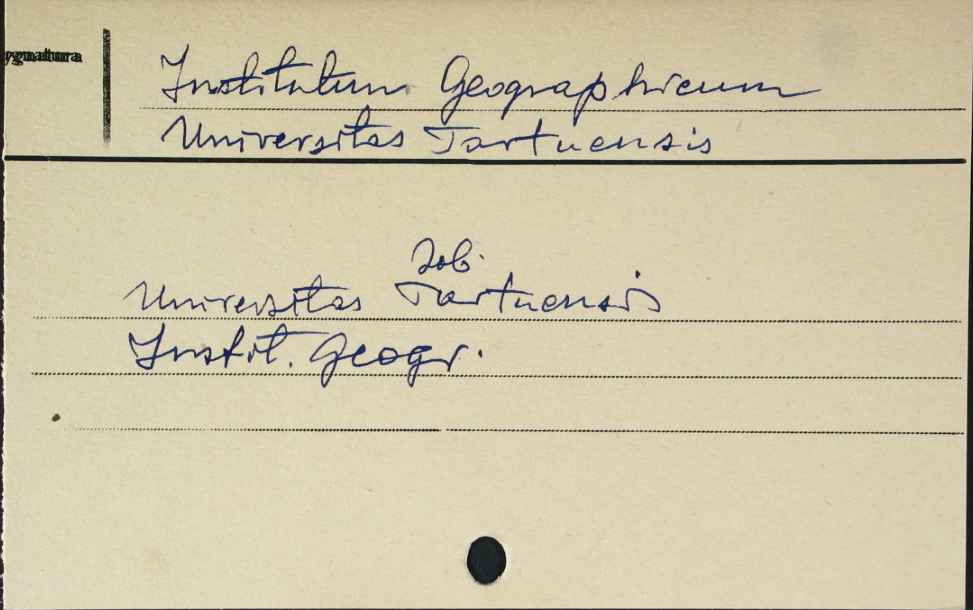 ygnatura
Institutum Geographicum
Universitas Tartuensis
Zob.
Universitas Tartuensis
Instit. Geogr.